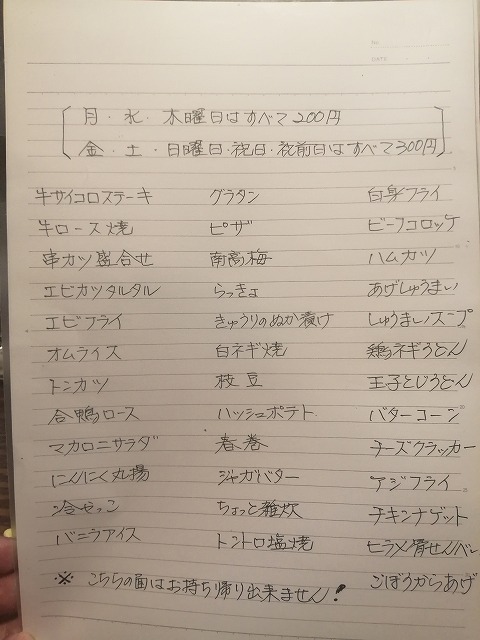 NO.
DATE
月・水・木曜日はすべて200円
金・土・日曜日・祝日・祝前日はすべて300円
牛サイコロステーキ
牛ロース焼
串カツ盛合せ
エビカツタルタル
エビフライ
オムライス
トンカツ
合鴨ロース
マカロニサラダ
にんにく丸揚
冷やっこ
バニラアイス
グラタン
ピザ
南高梅
らっきょ
きゅうりのぬか漬け
白ネギ焼
枝豆
ハッシュポテト
春巻
ジャガバター
ちょっと雑炊
トントロ塩焼
白身フライ
ビーフコロッケ
ハムカツ
あげしゅうまい
しゅうまいスープ
鶏ネギうどん
玉子とじうどん
バターコーン
チーズクラッカー
アジフライ
チキンナゲット
ヒラメ骨せんべい
ごぼうからあげ
※ こちらの面はお持ち帰り出来ません!